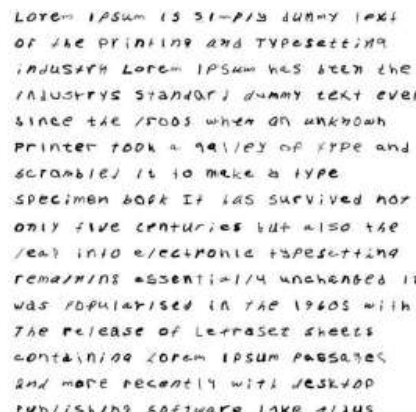 Lorem Ipsum is simply dummy text
of the printing and typesetting
industry Lorem Ipsum has been the
industrys standard dummy text ever
since the 1500s when an unknown
printer took a galley of type and
scrambled it to make a type
specimen book It has survived not
only five centuries but also the
leap into electronic typesetting
remaining essentially unchanged It
was popularised in the 1960s with
The release of Letraset sheets
containing Lorem Ipsum passages
and more recently with desktop
publishing software like aldus